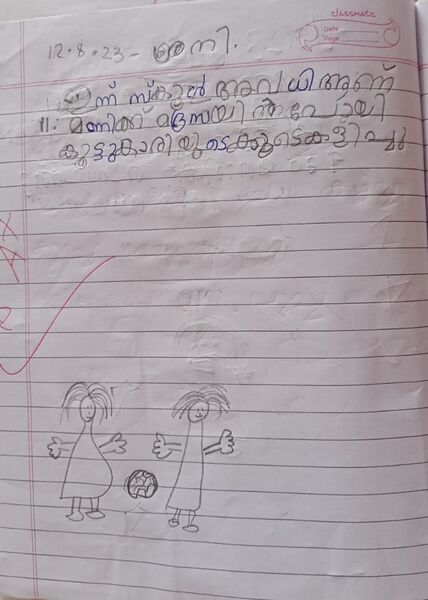 classmate
Date
Page
12.8.23 - ശനി.
ഇന്ന് സ്കൂൾ അവധി ആണ്
11: മണിക്ക് മദ്രസയിൽ പോയി
കൂട്ടുകാരിയുടെകൂടെകളിച്ചു